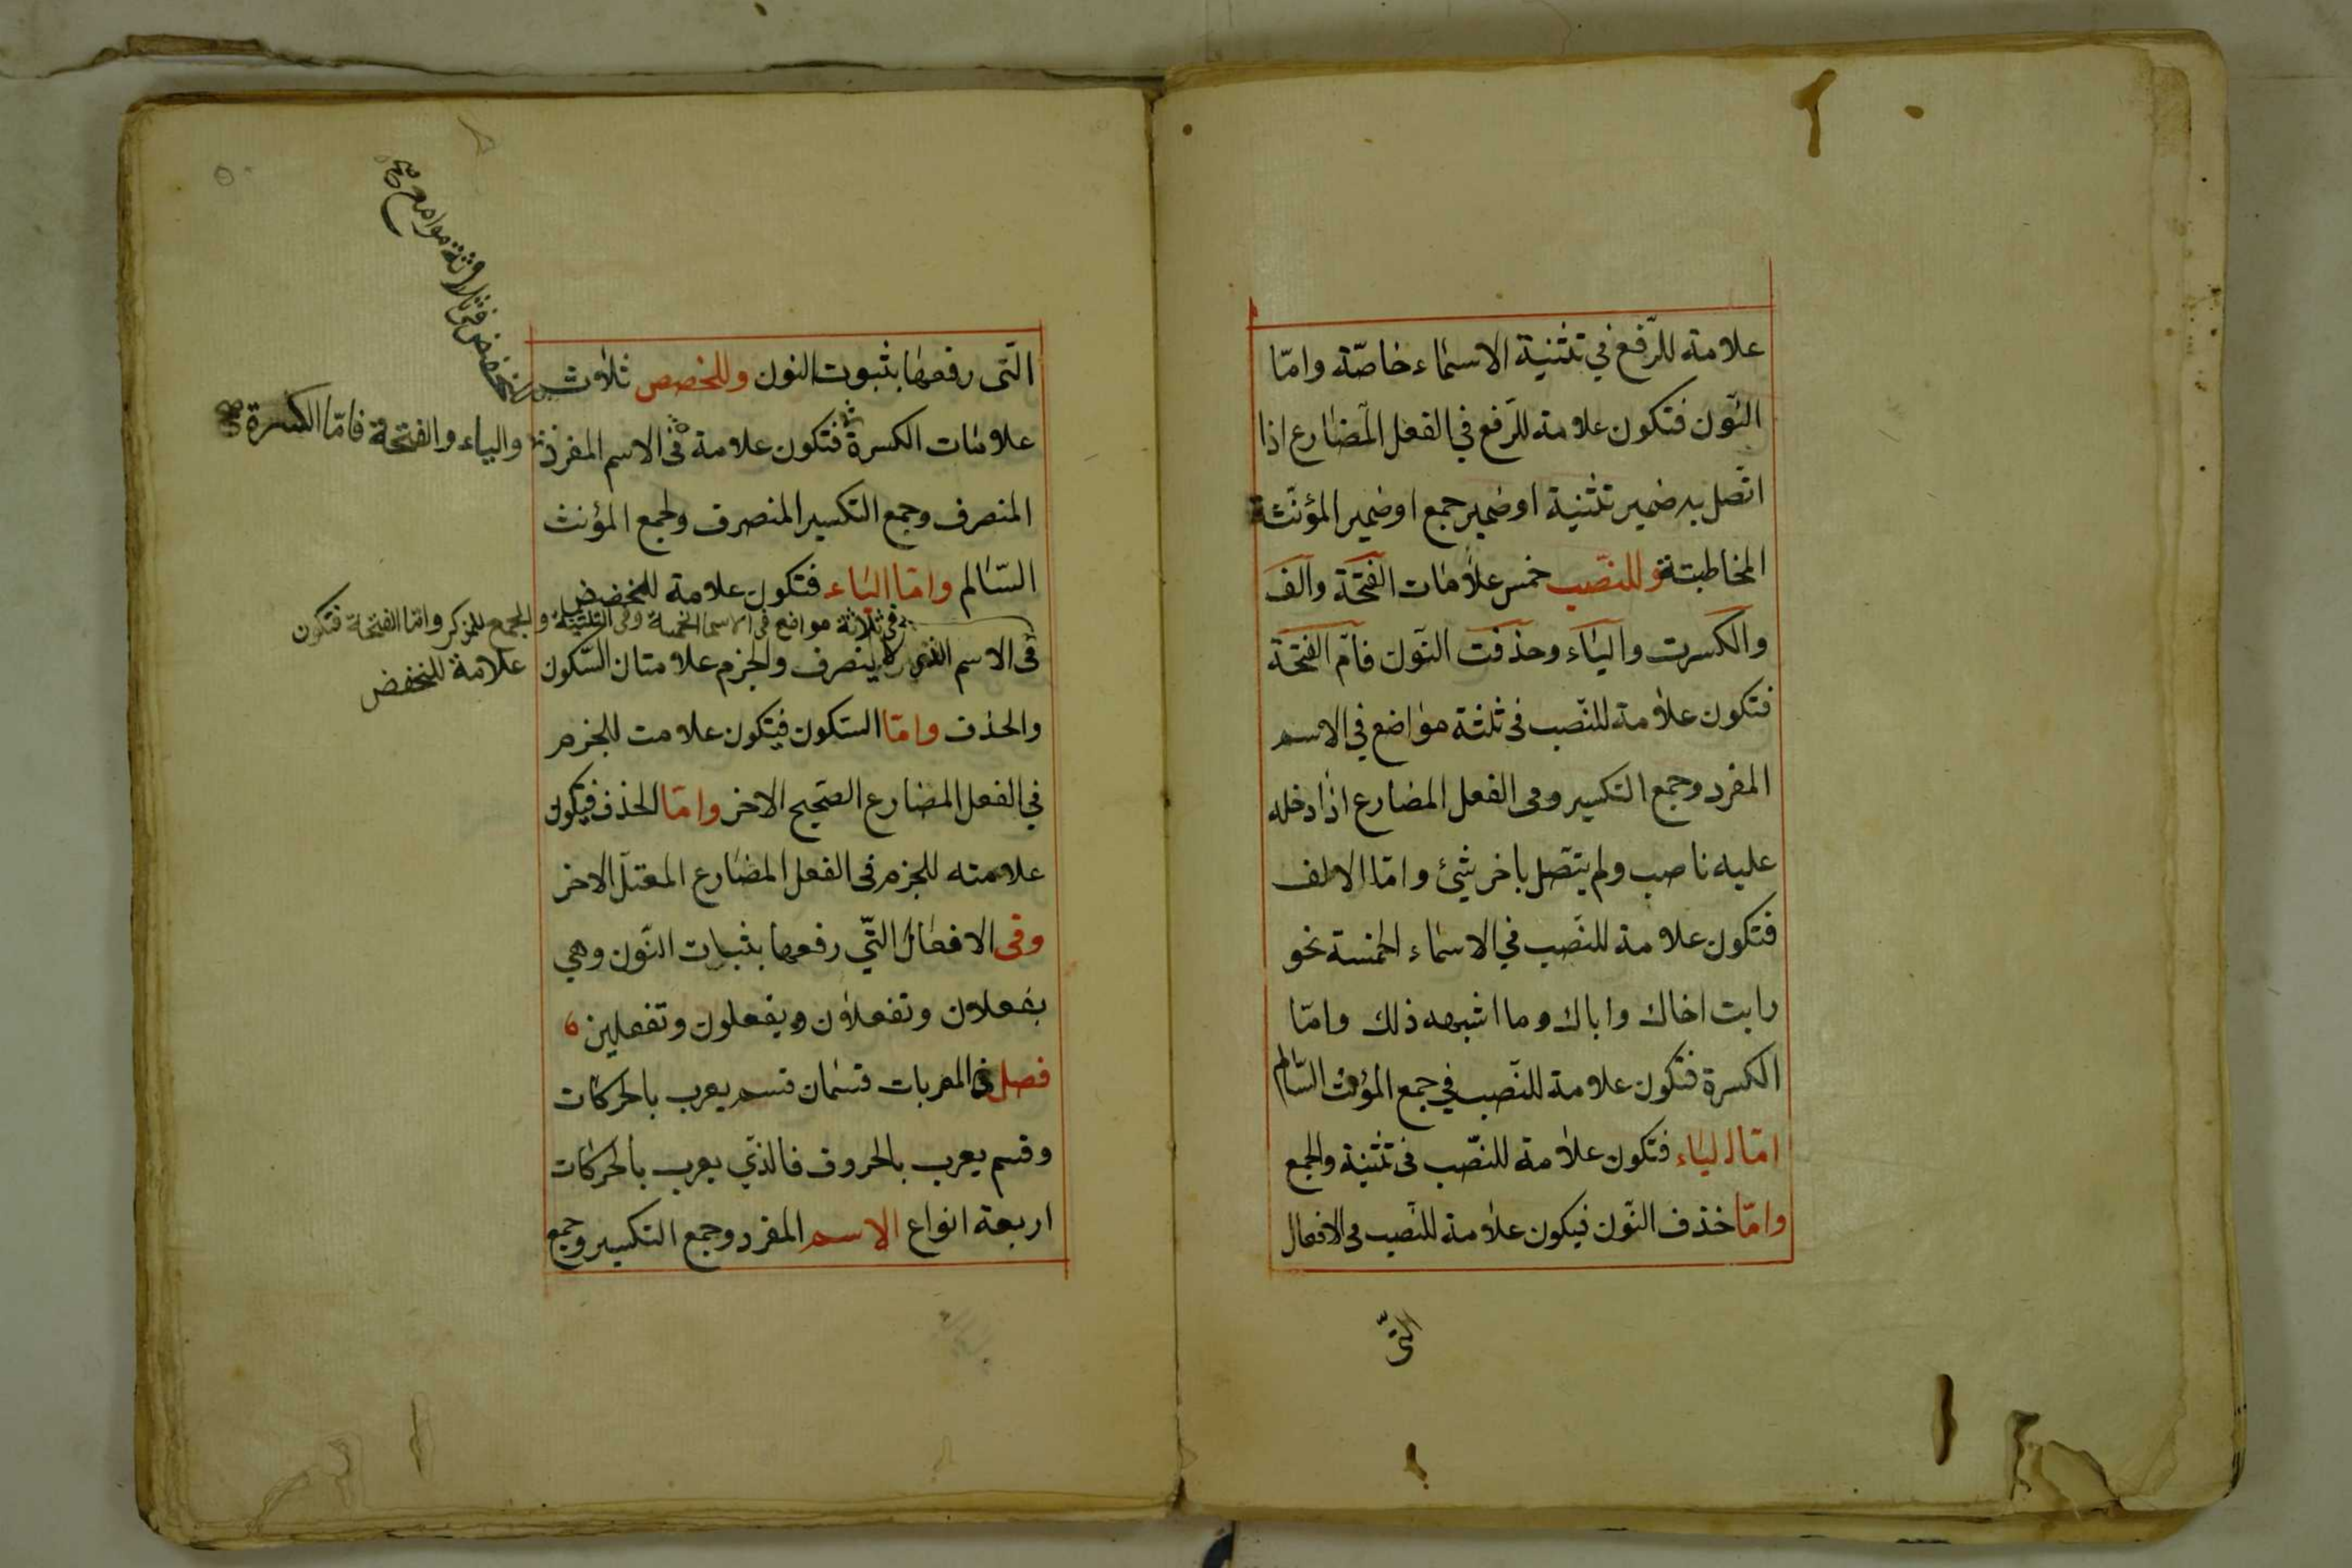 علامة للرّفع في تثنية الاسماء خاصّة وامّا
النّون فتكون علامة للرّفع في الفعل المضارع اذا
اتّصل به ضمير تثنية او ضمير جمع او ضمير المؤنّثة
المخاطبتة وللنصّب خمس علامات الفتحة والف
والكسرت والياء وحذفت النّون فامّ الفتحة
فتكون علامة للنّصب فى ثلثة مواضع في الاسم
المفرد وجمع التكسير وفى الفعل المضارع اذا دخله
عليه ناصب ولم يتّصل باخر شئ وامّا الالف
فتكون علامة للنّصب في الاسماء الخمسة نحو
رايت اخاك واباك وما اشبهه ذلك وامّا
الكسرة فتكون علامة للنّصب في جمع المؤنث السّالم
امّا الياء فتكون علامة للنّصب فى تثنية والجمع
وامّا خذف النّون فيكون علامة للنّصب فى الافعال
التّى
الّتى رفعها بثبوت النون وللخصص ثلاث
علامات الكسرة فتكون علامة فى الاسم المفرد
والياء والفتحة فامّا الكسرة
للخفض فى ثلاثة مواضع
المنصرف وجمع التكسير المنصرف ولجمع المؤنث
السّالم وامّا الياء فتكون علامة للخفض
فى ثلاثة مواضع فى الاسما الخمسة وفى التثنية والجمع للمذكر وامّا الفتحة فتكون
علامة للخفض
فى الاسم الذى لا ينصرف والجزم علامتان السّكون
والحذف وامّا السّكون فيتكون علامت للجزم
في الفعل المضارع الصّحيح الاخر وامّا الحذف فيكون
علامته للجزم فى الفعل المضارع المعتلّ الاخر
وفى الافعال التّي رفعها بثبات النّون وهي
يفعلان وتفعلاون ويفعلون وتفعلين
فصل فى المعربات قسمان قسم يعرب بالحركات
وقسم يعرب بالحروف فالذّي يعرب بالحركات
اربعة انواع الاسم المفرد وجمع التكسير وجمع